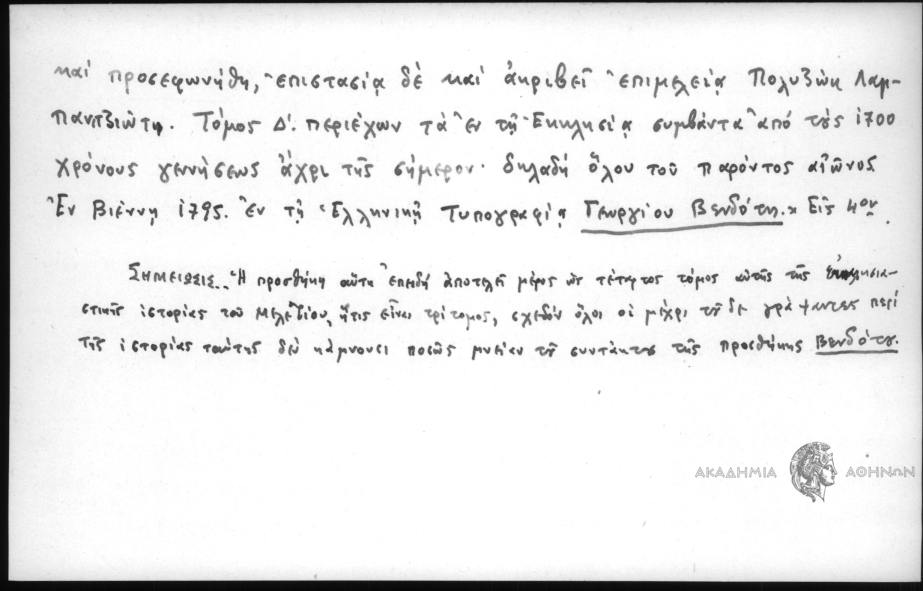 καὶ προσεφωνήθη, ἐπιστασίᾳ δὲ καὶ ἀκριβεῖ ἐπιμελείᾳ Πολυζώη Λαμ-
πανιτζιώτῃ. Τόμος Δ'. περιέχων τὰ ἐν τῇ Ἐκκλησίᾳ συμβάντα ἀπό τοὺς 1700
χρόνους γεννήσεως ἄχρι τῆς σήμερον· δηλαδή ὅλου τοῦ παρόντος αἰῶνος.
Ἐν Βιέννῃ 1795. Ἐν τῇ Ἑλληνικῇ Τυπογραφίᾳ Γεωργίου Βενδότη.» Εἰς 4ον.
Σημείωσις.. Ἡ προσθήκη αὕτη ἐπειδή ἀποτελεῖ μέρος ὡς τέταρτος τόμος αὐτῆς τῆς ἐκκλησια-
στικῆς ἱστορίας τοῦ Μελετίου, ἥτις εἶναι τρίτομος, σχεδόν ὅλοι οἱ μέχρι τοῦδε γράψαντες περί
τῆς ἱστορίας ταύτης δέν κάμνουσι ποσῶς μνείαν τοῦ συντάκτου τῆς προσθήκης Βενδότου.
ΑΚΑΔΗΜΙΑ ΑΘΗΝΩΝ